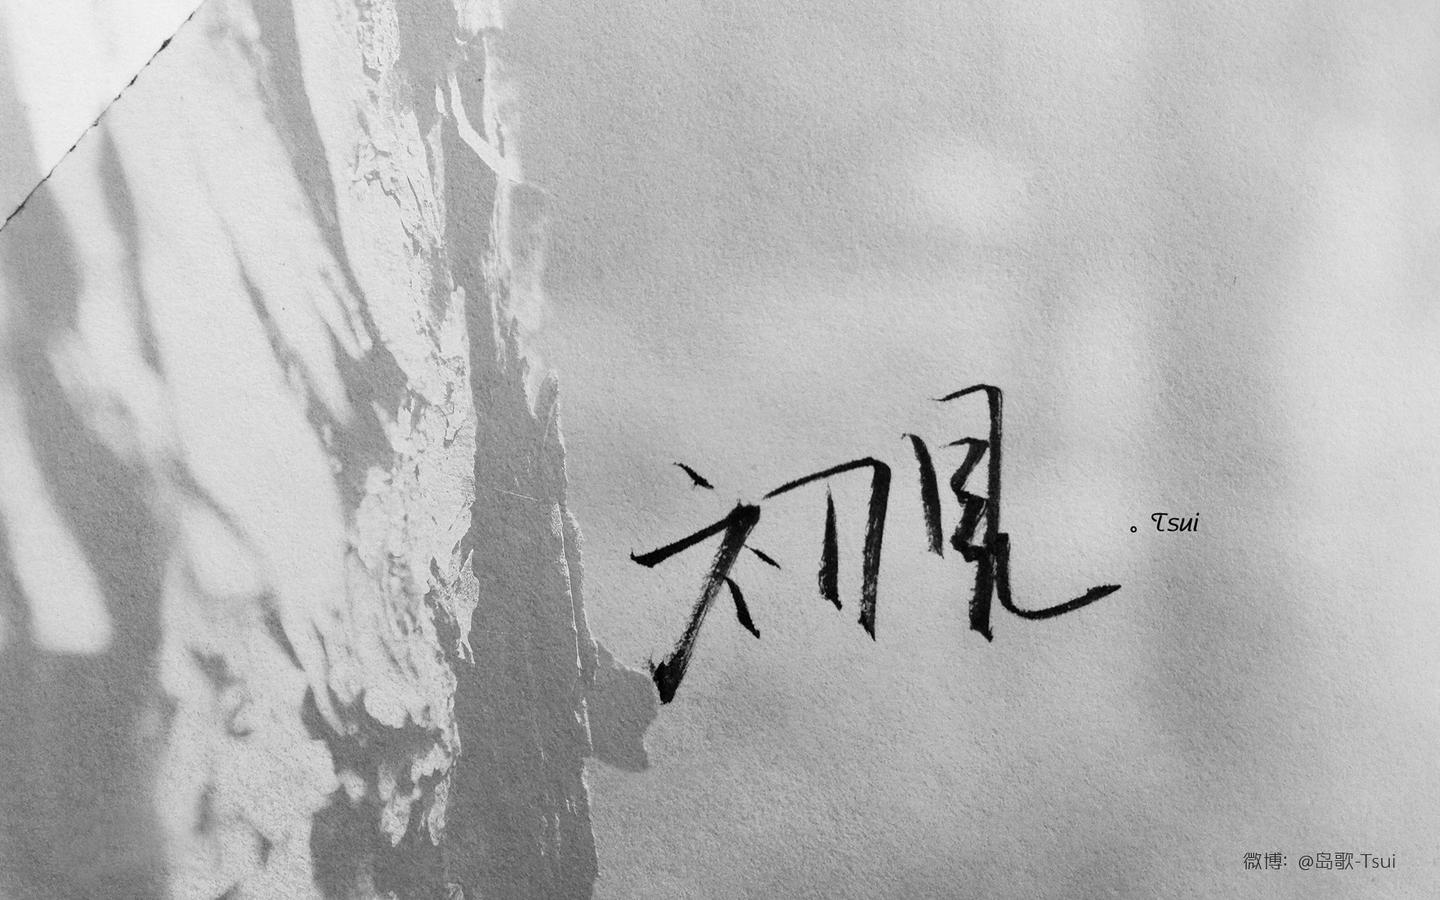 初見
。Tsui
微博: @岛歌-Tsui